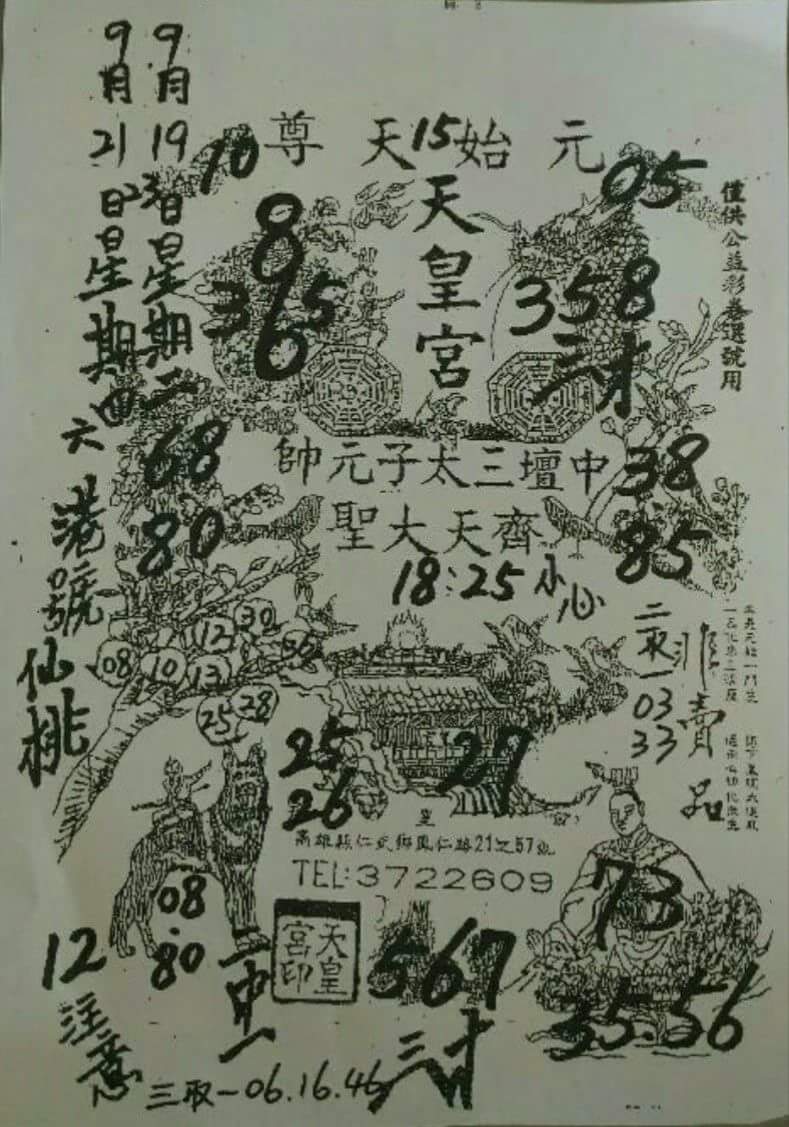 9月19日星期二
9月21日星期四
23
六
港號
仙桃
元始天尊
15
10
05
天皇宮
僅供公益彩卷選號用
8
9
6
3
5
358
三才
68
80
中壇三太子元帥
38
齊天大聖
85
18:25
小心
二取一
03
33
非賣品
30
12
08
10
13
28
25
25
26
27
皇
高雄縣仁武鄉鳳仁路21之57號
TEL:3722609
天皇宮印
08.80
二中一
12
注意
567
三才
73
35.56
三取一06.16.46